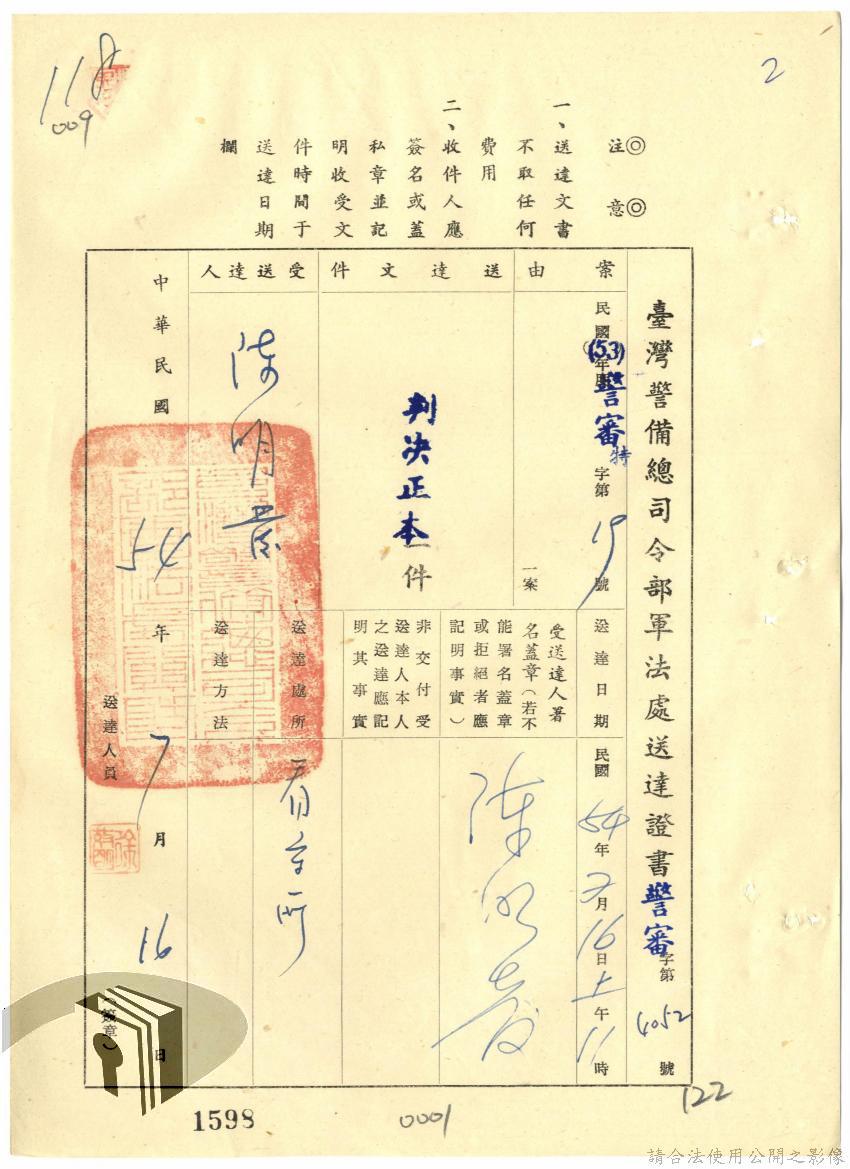 118
009
2
注意
一、送達文書
不取任何
費用
二、收件人應
簽名或蓋
私章並記
明收受文
件時間于
送達日期
欄
臺灣警備總司令部軍法處送達證書警審字第4052號
案由
民國(53)年度警審特字第19號
一案
送達文件
判決正本一件
受送達人
陳明
送達日期
民國54年7月16日上午11時
受送達人署
名蓋章(若不
能署名蓋章
或拒絕者應
記明事實)
陳明
非交付受
送達人本人
之送達應記
明其事實
送達處所
看守所
送達方法
中華民國54年7月16日
送達人員
(簽章)
1598
0001
122
請合法使用公開之影像